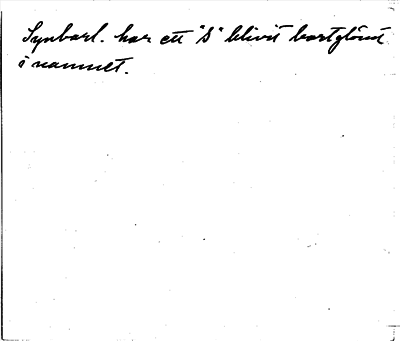 Synbarl. har ett "S" blivit bortglömt
i namnet.